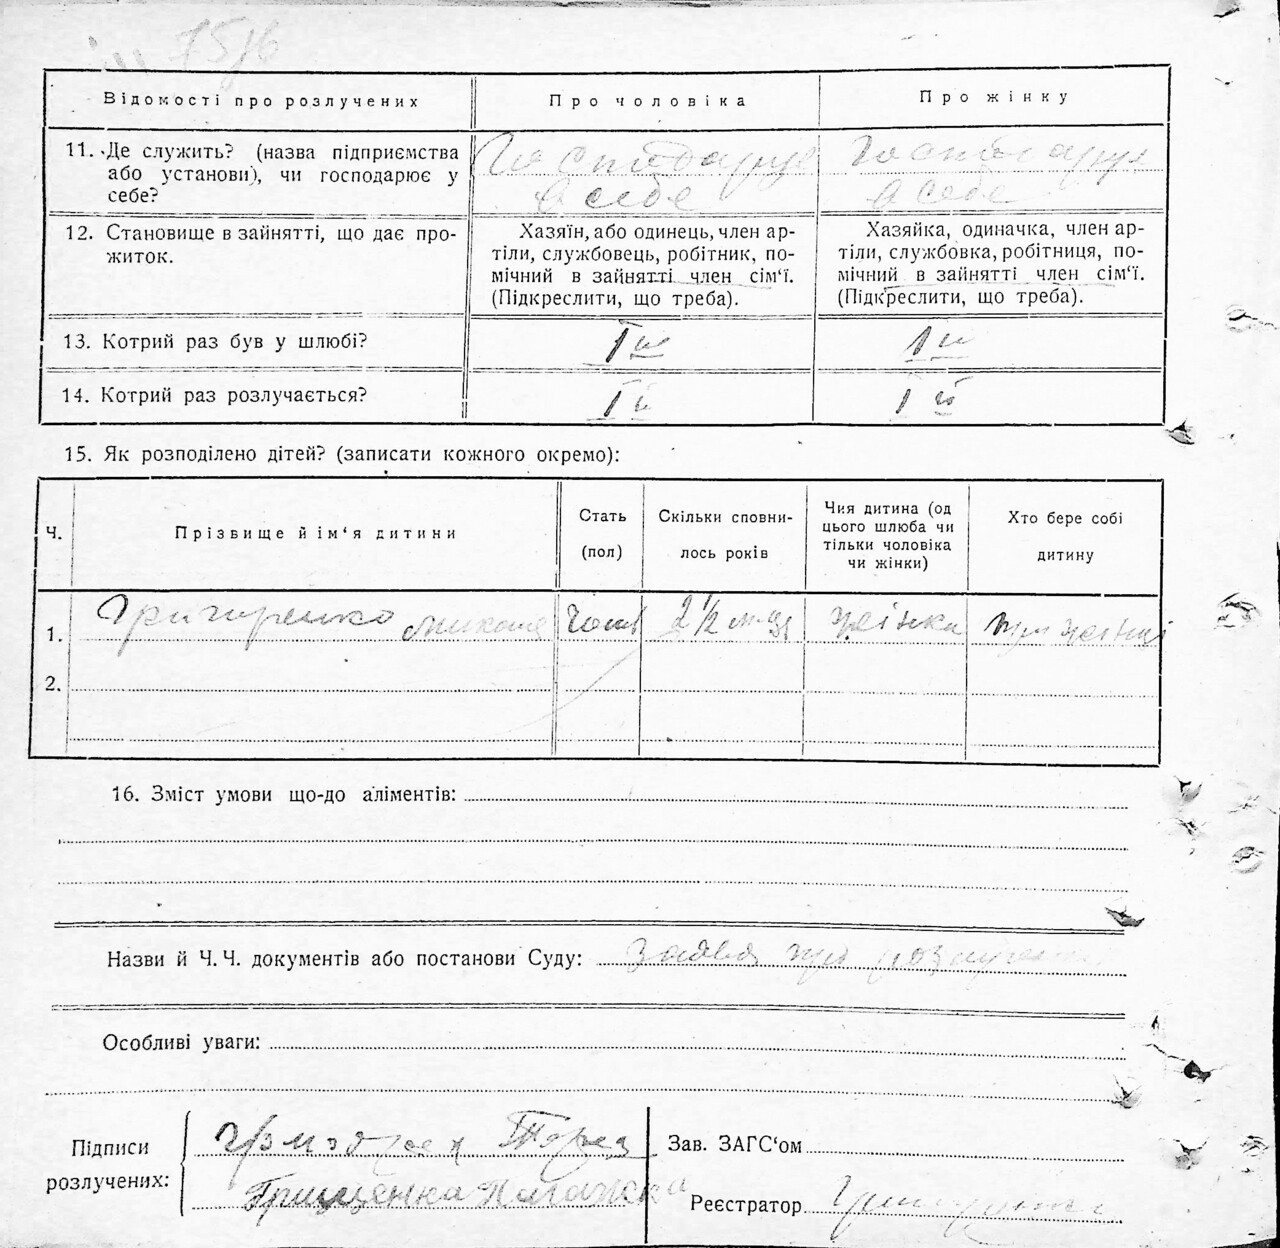 Відомості про розлучених
Про чоловіка
Про жінку
11. Де служить? (назва підприємства
або установи), чи господарює у
себе?
Господарує
в себе
Господарує
в себе
12. Становище в зайнятті, що дає про-
житок.
Хазяїн, або одинець, член ар-
тіли, службовець, робітник, по-
мічний в зайнятті член сім‘ї.
(Підкреслити, що треба).
Хазяйка, одиначка, член ар-
тіли, службовка, робітниця, по-
мічний в зайнятті член сім‘ї.
(Підкреслити, що треба).
13. Котрий раз був у шлюбі?
I й
1 й
14. Котрий раз розлучається?
I й
1 й
15. Як розподілено дітей? (записати кожного окремо):
Ч.
Прізвище й ім‘я дитини
Стать
(пол)
Скільки сповни-
лось років
Чия дитина (од
цього шлюба чи
тільки чоловіка
чи жінки)
Хто бере собі
дитину
1.
Григоренко Микола
чол
2 1/2 м-ці
жінки
при жінці
2.
16. Зміст умови що-до аліментів:
Назви й Ч. Ч. документів або постанови Суду: заява про розлучення
Особливі уваги:
Підписи
розлучених:
Грищенко
Зав. ЗАГС‘ом
Реєстратор